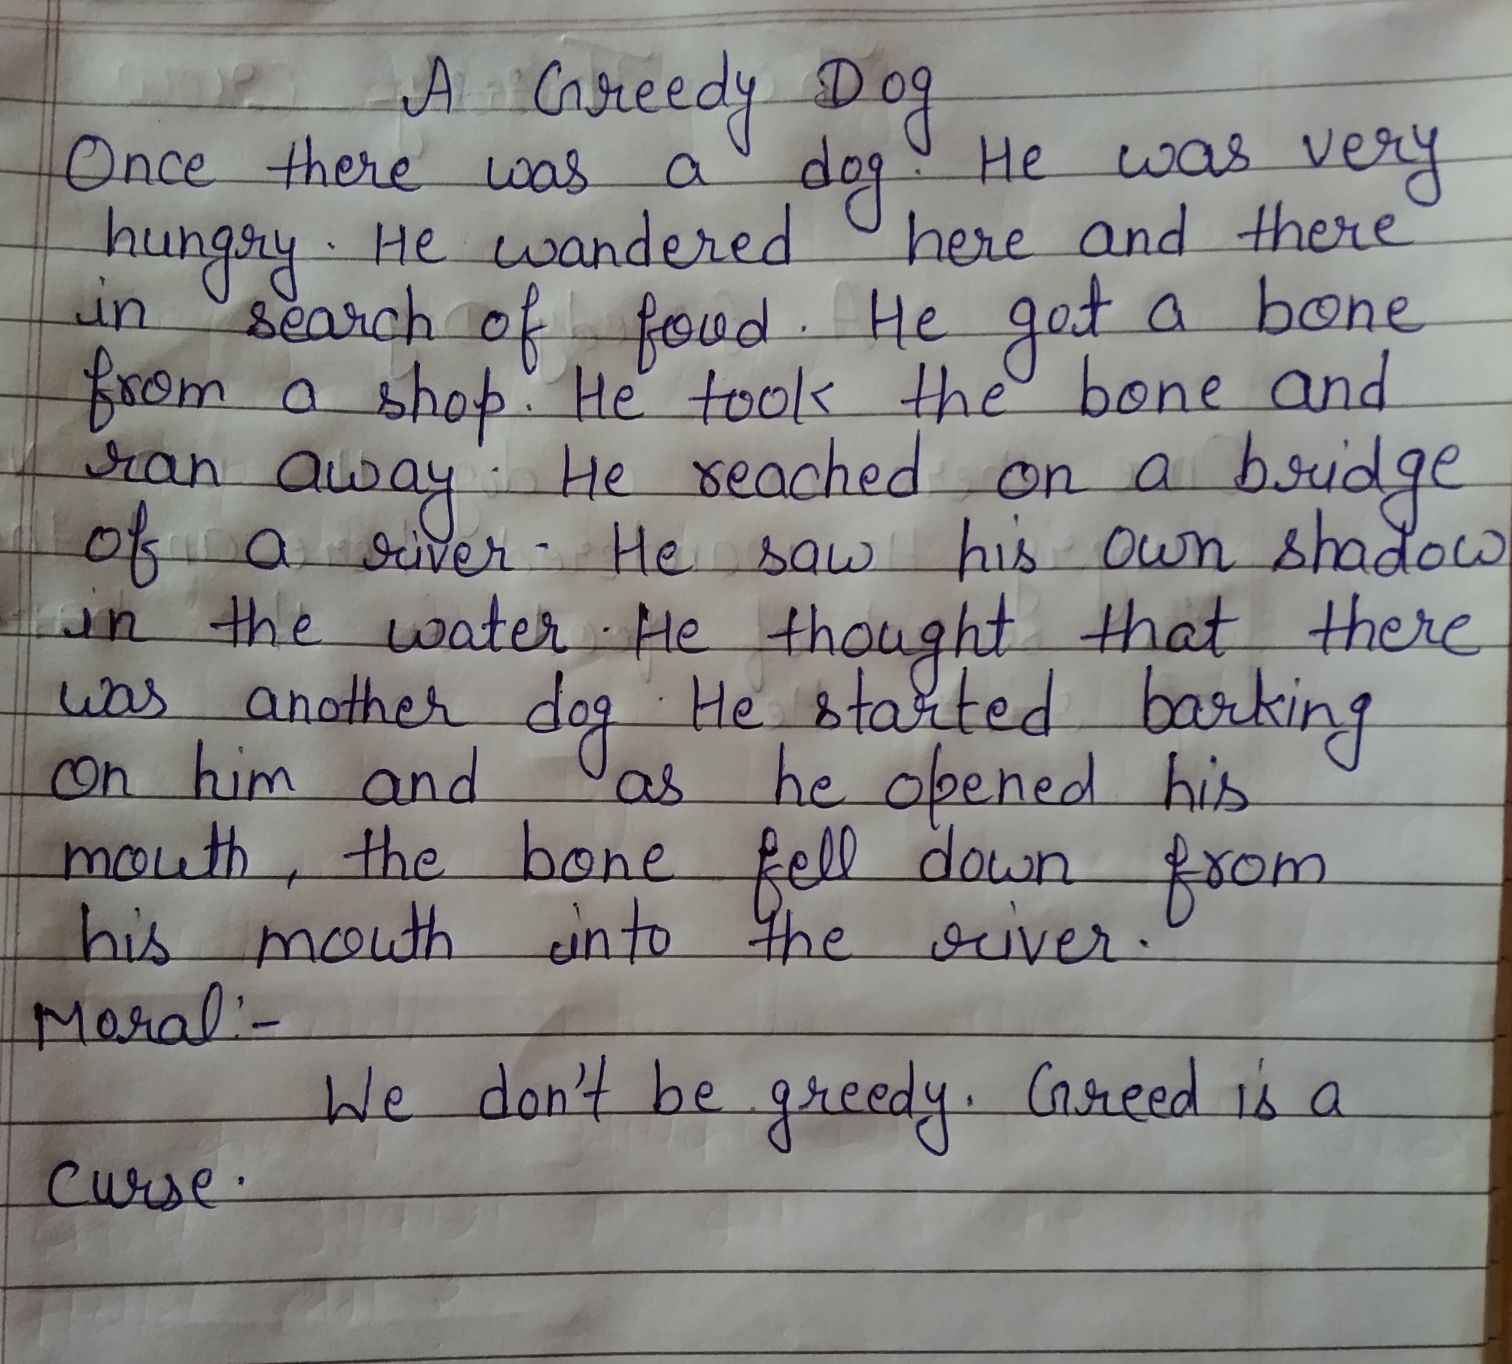 A Greedy Dog
Once there was a dog. He was very
hungry. He wandered here and there
in search of food. He got a bone
from a shop. He took the bone and
ran away. He reached on a bridge
of a river. He saw his own shadow
in the water. He thought that there
was another dog. He started barking
on him and as he opened his
mouth, the bone fell down from
his mouth into the river.
Moral:-
We don't be greedy. Greed is a
curse.